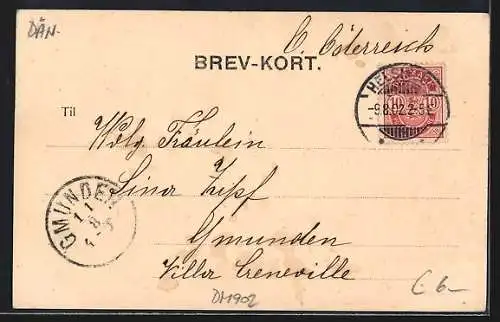 DÄN-
O. Österreich
BREV-KORT.
HELSINGØR
10 10
-9.8.02.2-5
Til
Wolg. Fräulein
Lina Zepf
Gmunden
Villa Creneville
GMUNDEN
11
8
DM902
C 6-